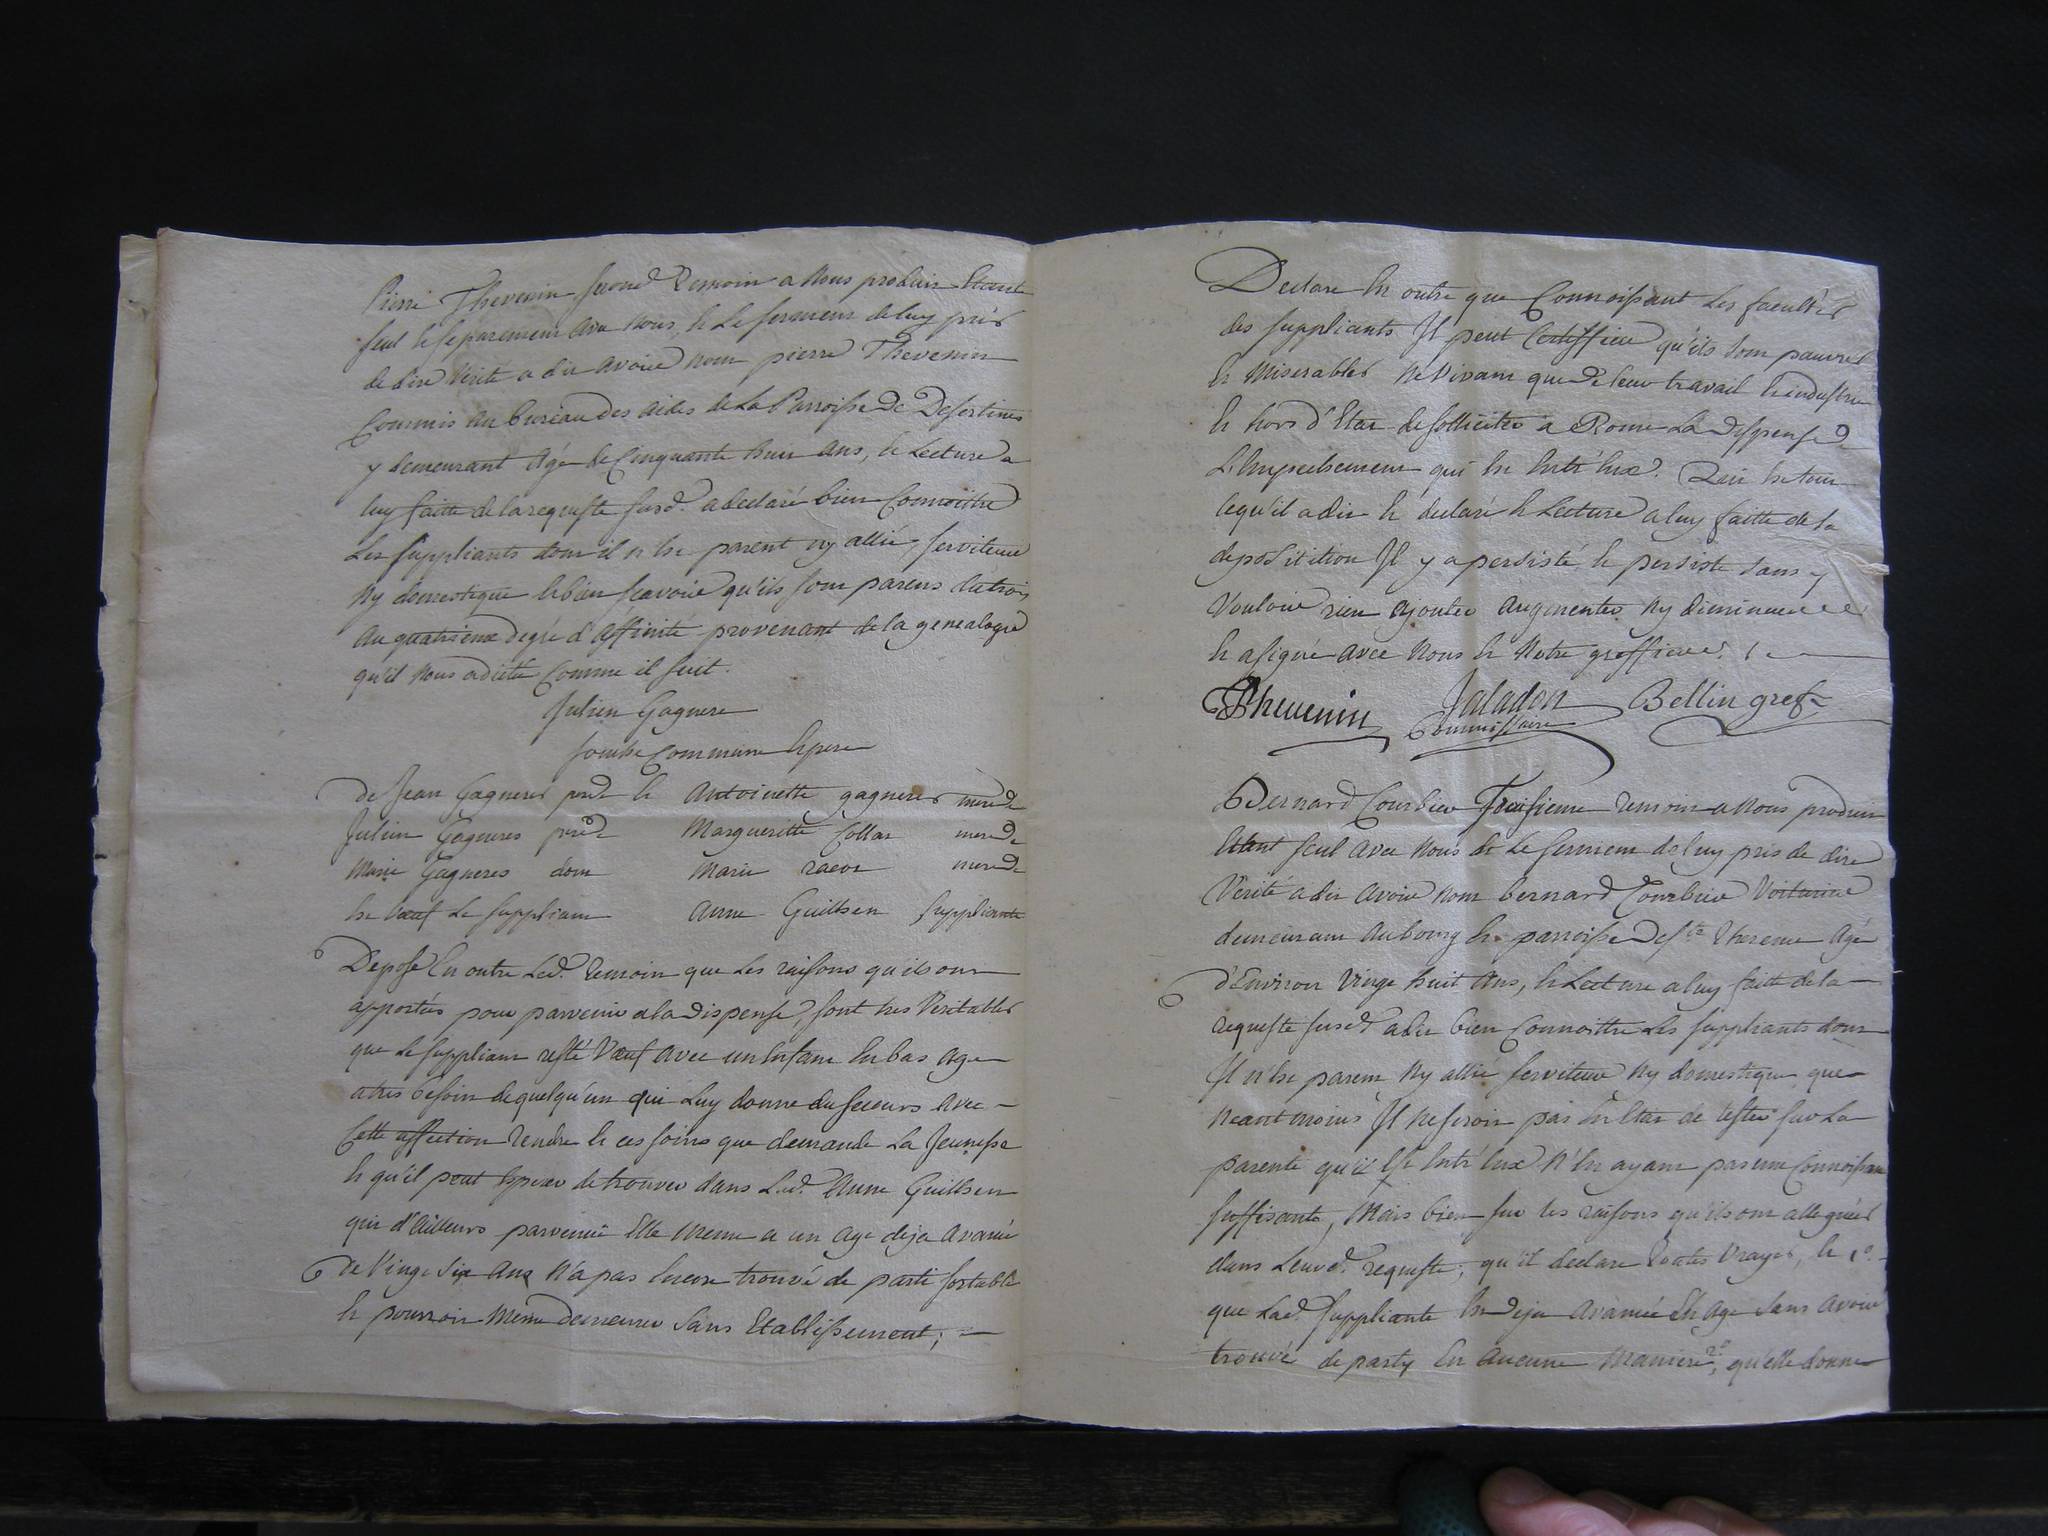 Pierre Thevenin second temoin a nous produit Etant
seul et separement avec nous, et le serment de luy pris
de dire verité a dit avoir nom pierre Thevenin
Commis au bureau des aides de la Parroisse De Desertines
y demeurant Agé de Cinquante huit ans, et Lecture a
luy faitte de la requeste susd. a declaré bien Connoittre
Les suppliants dont il n'est parent ny allié serviteur
Ny domestique et bien scavoir qu'ils sont parens du trois
au quatrieme degré d'affinité provenant de la genealogie
qu'il nous a dicté Comme il suit.
Julien Gagnere
souche Commune et pere
De Jean Gagneres pere de et Antoinette gagneres mere de
Julien Gagneres pere de Margueritte Collas mere de
Marie Gagneres dont Marie mere de
est Vœuf Le suppliant Anne Guillien suppliante
Depose En outre Led. temoin que Les raisons qu'ils ont
apportées pour parvenir a la dispense, sont tres Veritables
que Le suppliant resté Vœuf avec un Enfant En bas age
a tres besoin de quelqu'un qui Luy donne du secours avec
Cette affection tendre et ces soins que demande La Jeunesse
et qu'il peut esperer de trouver dans Lad. Anne Guillien
qui d'ailleurs parvenue Elle meme a un age deja avancé
de Vingt six ans N'a pas Encore trouvé de parti sortable
et pourroit Meme demeurer sans Etablissement;
Declare En outre que Connoissant Les facultés
des suppliants Il peut Certiffier qu'ils sont pauvres
et Miserables Ne Vivant que de leur travail et industrie
et hors d'Etat de solliciter a Rome La dispense de
L'Empechement qui est Entr'Eux. Qui est tout
ce qu'il a dit et declaré et Lecture a luy faitte de sa
deposition Il y a persisté et persiste sans y
Vouloir rien ajouter augmenter Ny diminuer
et a signé avec Nous et Notre greffier.
Thevenin Jaladon Commissaire Bellin gref.
Bernard Courbier Troisieme temoin a Nous produit
Etant seul avec Nous et Le serment de luy pris de dire
Verité a dit avoir Nom bernard Courbier Voiturier
demeurant au bourg et parroisse De ste Therence Agé
d'Environ Vingt huit Ans, et Lecture a luy faitte de la
requeste susd. a dit bien Connoittre Les suppliants dont
Il n'est parent Ny allié serviteur Ny domestique que
neantmoins Il ne seroit pas En Etat de tester sur La
parenté qu'il Est Entr'Eux N'En ayant pas une Connoissance
suffisante, Mais bien sur les raisons qu'ils ont alleguées
dans Leurd. requeste; qu'il declare toutes Vrayes, et 1°.
que Lad. suppliante est deja avancée En Age sans avoir
trouvé de party En aucune Maniere, 2° qu'elle donne